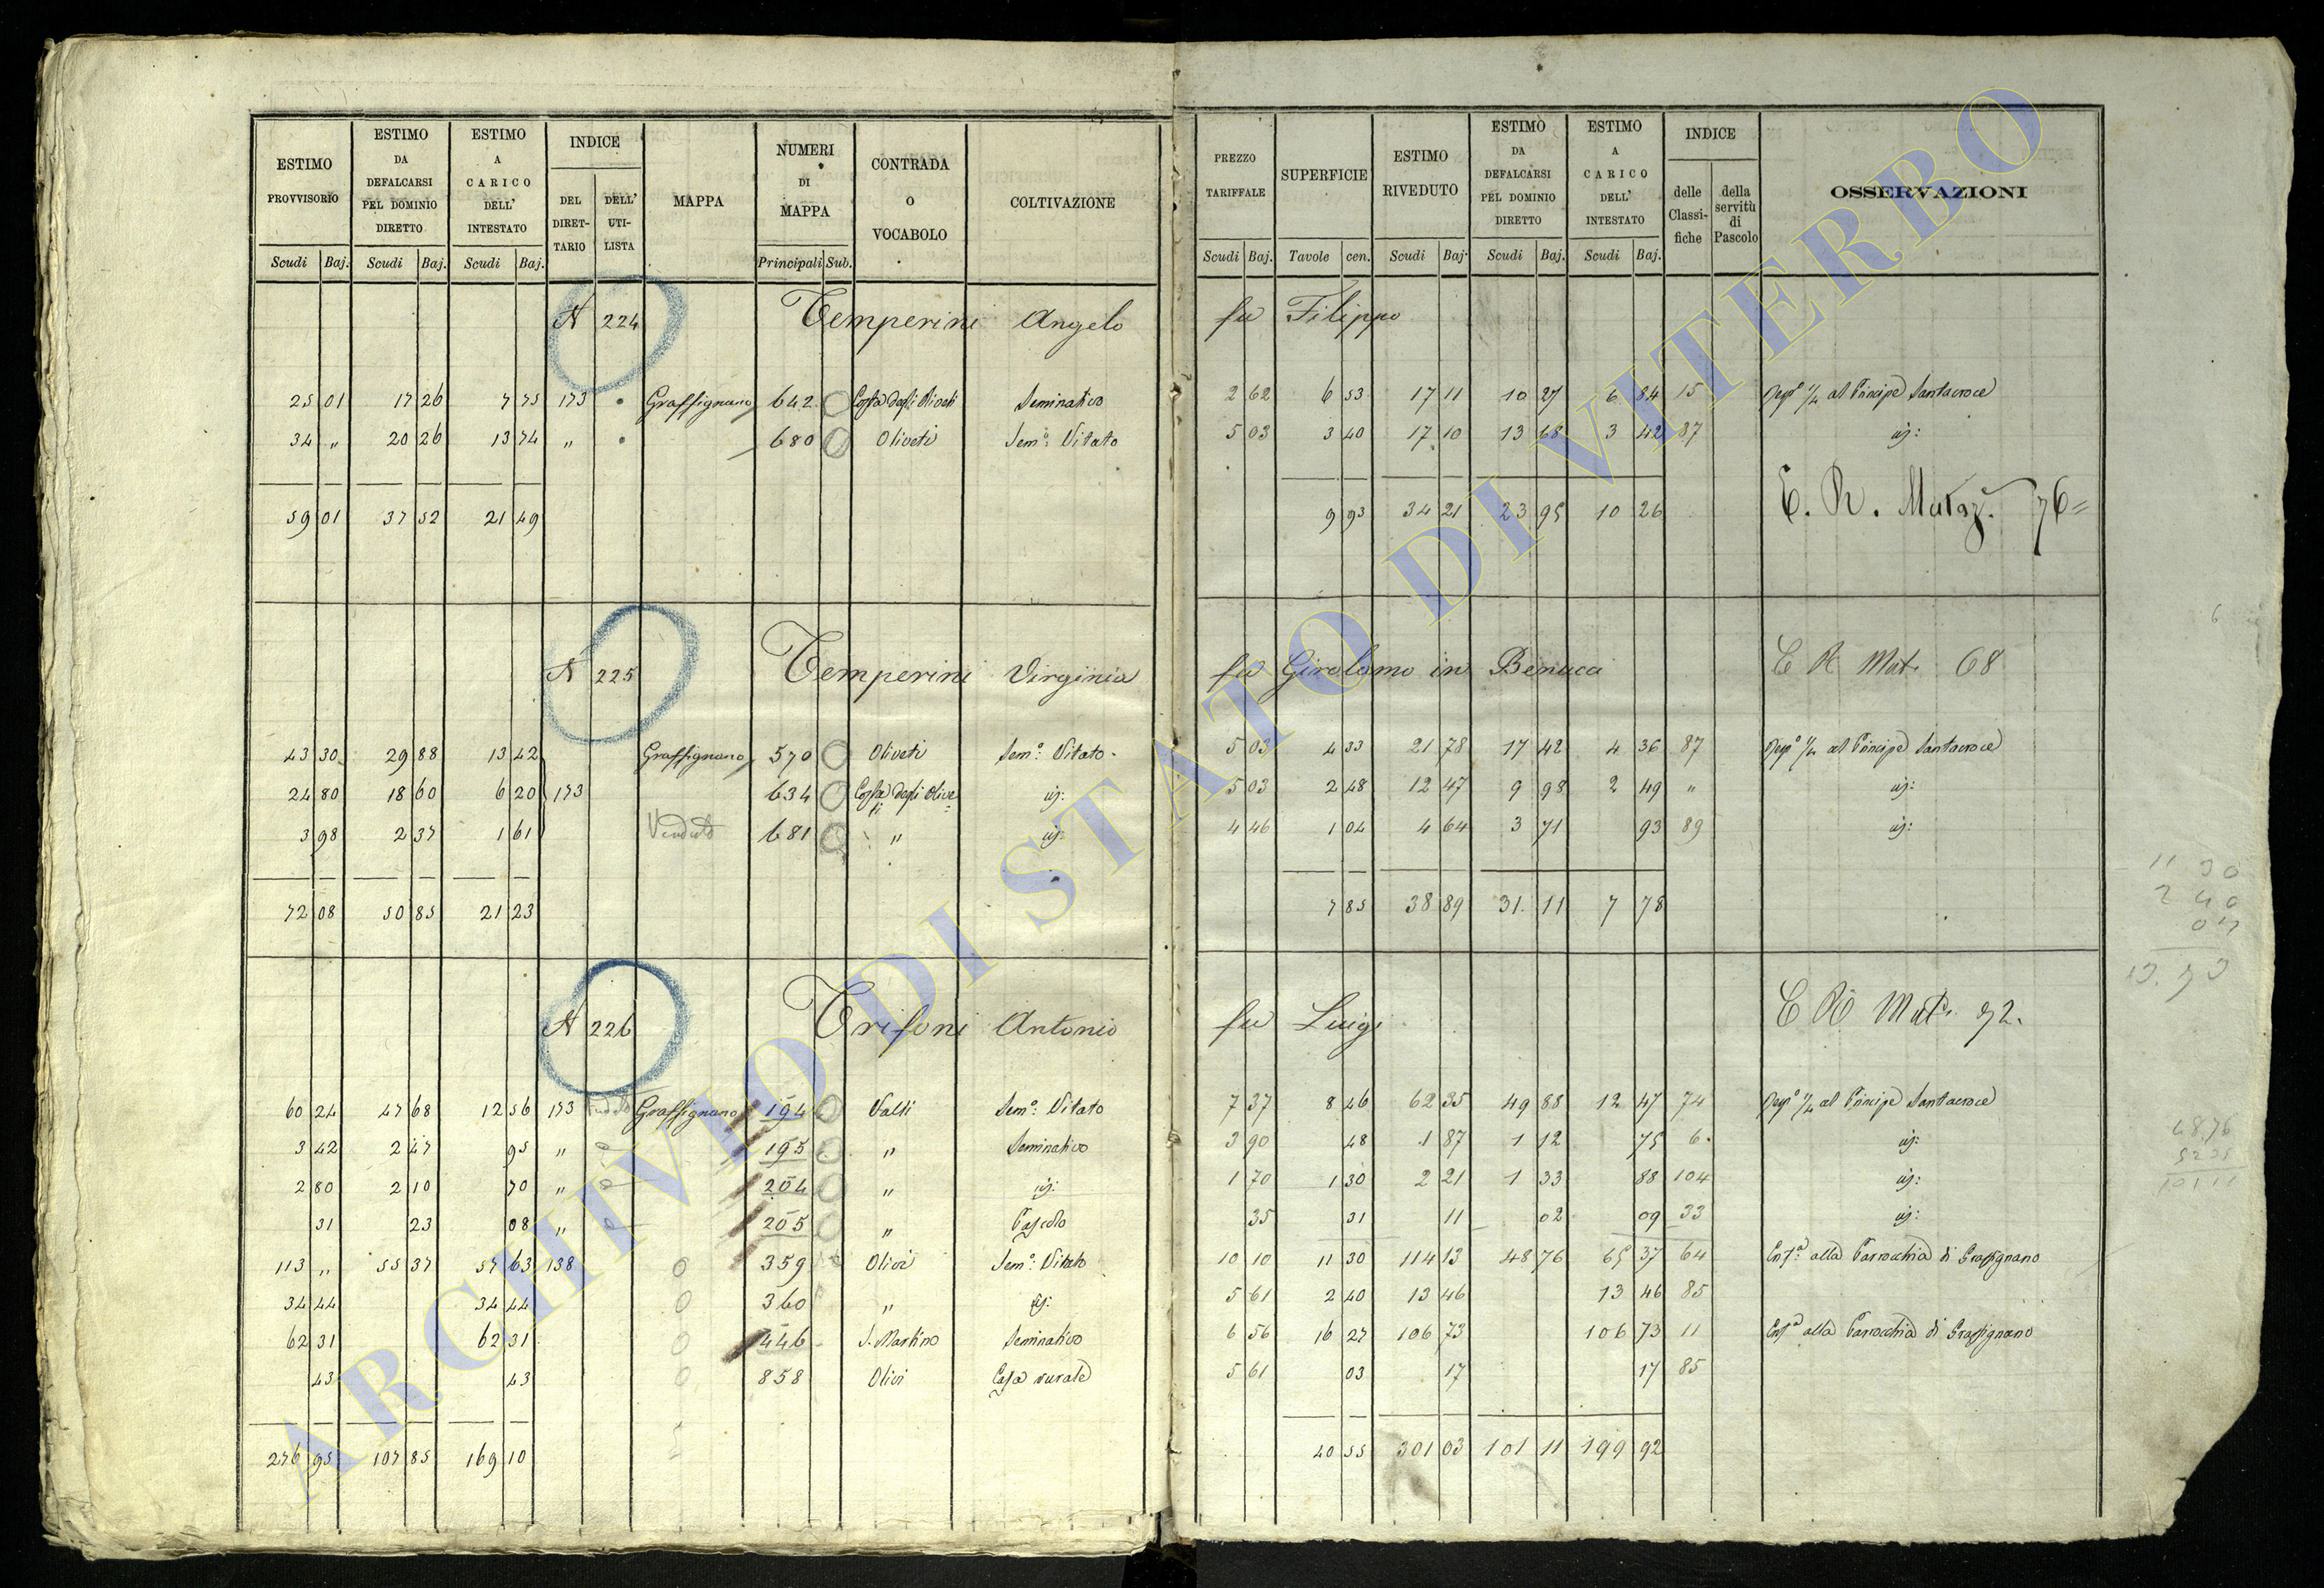 ESTIMO PROVVISORIO | ESTIMO DA DEFALCARSI PEL DOMINIO DIRETTO | ESTIMO A CARICO DELL' INTESTATO | INDICE | MAPPA | NUMERI DI MAPPA | CONTRADA O VOCABOLO | COLTIVAZIONE | PREZZO TARIFFALE | SUPERFICIE | ESTIMO RIVEDUTO | ESTIMO DA DEFALCARSI PEL DOMINIO DIRETTO | ESTIMO A CARICO DELL' INTESTATO | INDICE | OSSERVAZIONI
DEL DIRETTARIO | DELL' UTILISTA | delle Classifiche | della servitù di Pascolo
Scudi Baj. | Scudi Baj. | Scudi Baj. | Principali Sub. | Scudi Baj. | Tavole cen. | Scudi Baj. | Scudi Baj. | Scudi Baj.
N 224 Temperini Angelo fu Filippo
25 01 | 17 26 | 7 75 | 173 | Graffignano | 642 | Costa degli Oliveti | Seminativo | 2 62 | 6 53 | 17 11 | 10 27 | 6 84 | 15 | 1/4 al Principe Santacroce
34 " | 20 26 | 13 74 | " | 680 | Oliveti | Sem.o Vitato | 5 03 | 3 40 | 17 10 | 13 68 | 3 42 | 87 | id:
59 01 | 37 52 | 21 49 | 9 93 | 34 21 | 23 95 | 10 26 | C. R. Mataz. 76=
N 225 Temperini Virginia fu Girolamo in Benuca | C R Mat. 68
43 30 | 29 88 | 13 42 | Graffignano | 570 | Oliveti | Sem.o Vitato | 5 03 | 4 33 | 21 78 | 17 42 | 4 36 | 87 | 1/4 al Principe Santacroce
24 80 | 18 60 | 6 20 | 173 | 634 | Costa degli Oliveti | id: | 5 03 | 2 48 | 12 47 | 9 98 | 2 49 | " | id:
3 98 | 2 37 | 1 61 | Venduto | 681 | " | id: | 4 46 | 1 04 | 4 64 | 3 71 | 93 | 89 | id:
72 08 | 50 85 | 21 23 | 7 85 | 38 89 | 31 11 | 7 78
N 226 Trifoni Antonio fu Luigi | C R Mat. 72.
60 24 | 47 68 | 12 56 | 173 | Graffignano | 194 | Valli | Sem.o Vitato | 7 37 | 8 46 | 62 35 | 49 88 | 12 47 | 74 | 1/4 al Principe Santacroce
3 42 | 2 47 | 95 | " | 195 | " | Seminativo | 3 90 | 48 | 1 87 | 1 12 | 75 | 6 | id:
2 80 | 2 10 | 70 | " | 204 | " | id: | 1 70 | 1 30 | 2 21 | 1 33 | 88 | 104 | id:
31 | 23 | 08 | " | 205 | " | Pascolo | 35 | 31 | 11 | 02 | 09 | 33 | id:
113 " | 55 37 | 57 63 | 138 | 359 | Olivi | Sem.o Vitato | 10 10 | 11 30 | 114 13 | 48 76 | 65 37 | 64 | Enf.a alla Parrocchia di Graffignano
34 44 | 34 44 | 360 | " | id: | 5 61 | 2 40 | 13 46 | 13 46 | 85
62 31 | 62 31 | 446 | S. Martino | Seminativo | 6 56 | 16 27 | 106 73 | 106 73 | 11 | Enf.a alla Parrocchia di Graffignano
43 | 43 | 858 | Olivi | Casa rurale | 5 61 | 03 | 17 | 17 | 85
276 95 | 107 85 | 169 10 | 40 55 | 301 03 | 101 11 | 199 92
ARCHIVIO DI STATO DI VITERBO